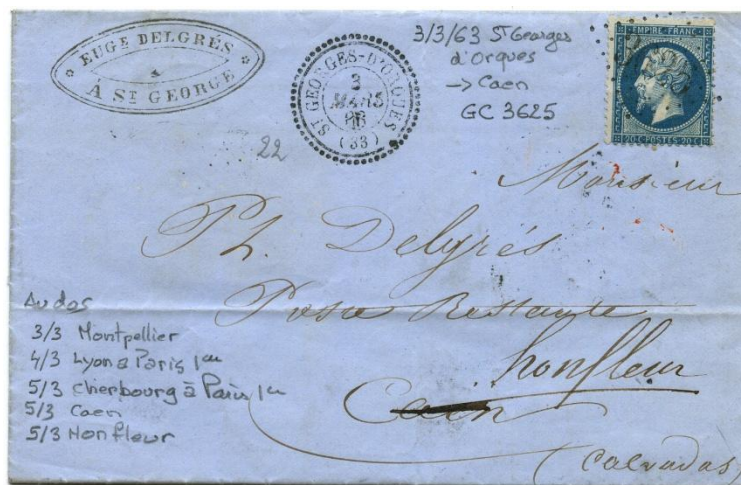 EUGE DELGRÉS
A
A ST GEORGE
ST GEORGES-D'ORQUES
3
MARS
(33)
3/3/63 St Georges
d'Orques
→ Caen
GC 3625
EMPIRE FRANC
20C POSTES 20C
22
Monsieur
Ph. Delgrés
Poste Restante
honfleur
Caen
(Calvados)
Au dos
3/3 Montpellier
4/3 Lyon a Paris 1er
5/3 Cherbourg à Paris 1er
5/3 Caen
5/3 Honfleur